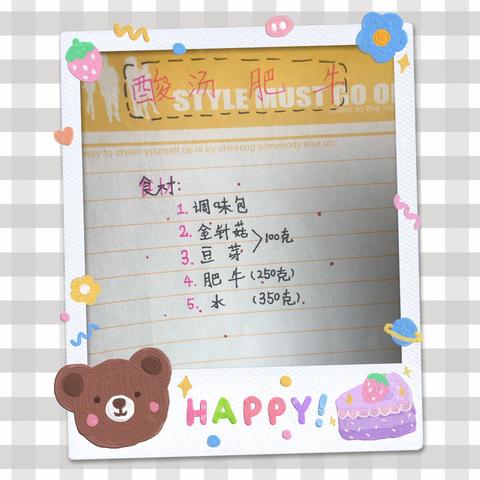 酸汤肥牛
STYLE MUST GO O
way to cheer yourself up is by cheering somebody else up.
食材:
1. 调味包
2. 金针菇
3. 豆芽 >100克
4. 肥牛(250克)
5. 水 (350克)
HAPPY!